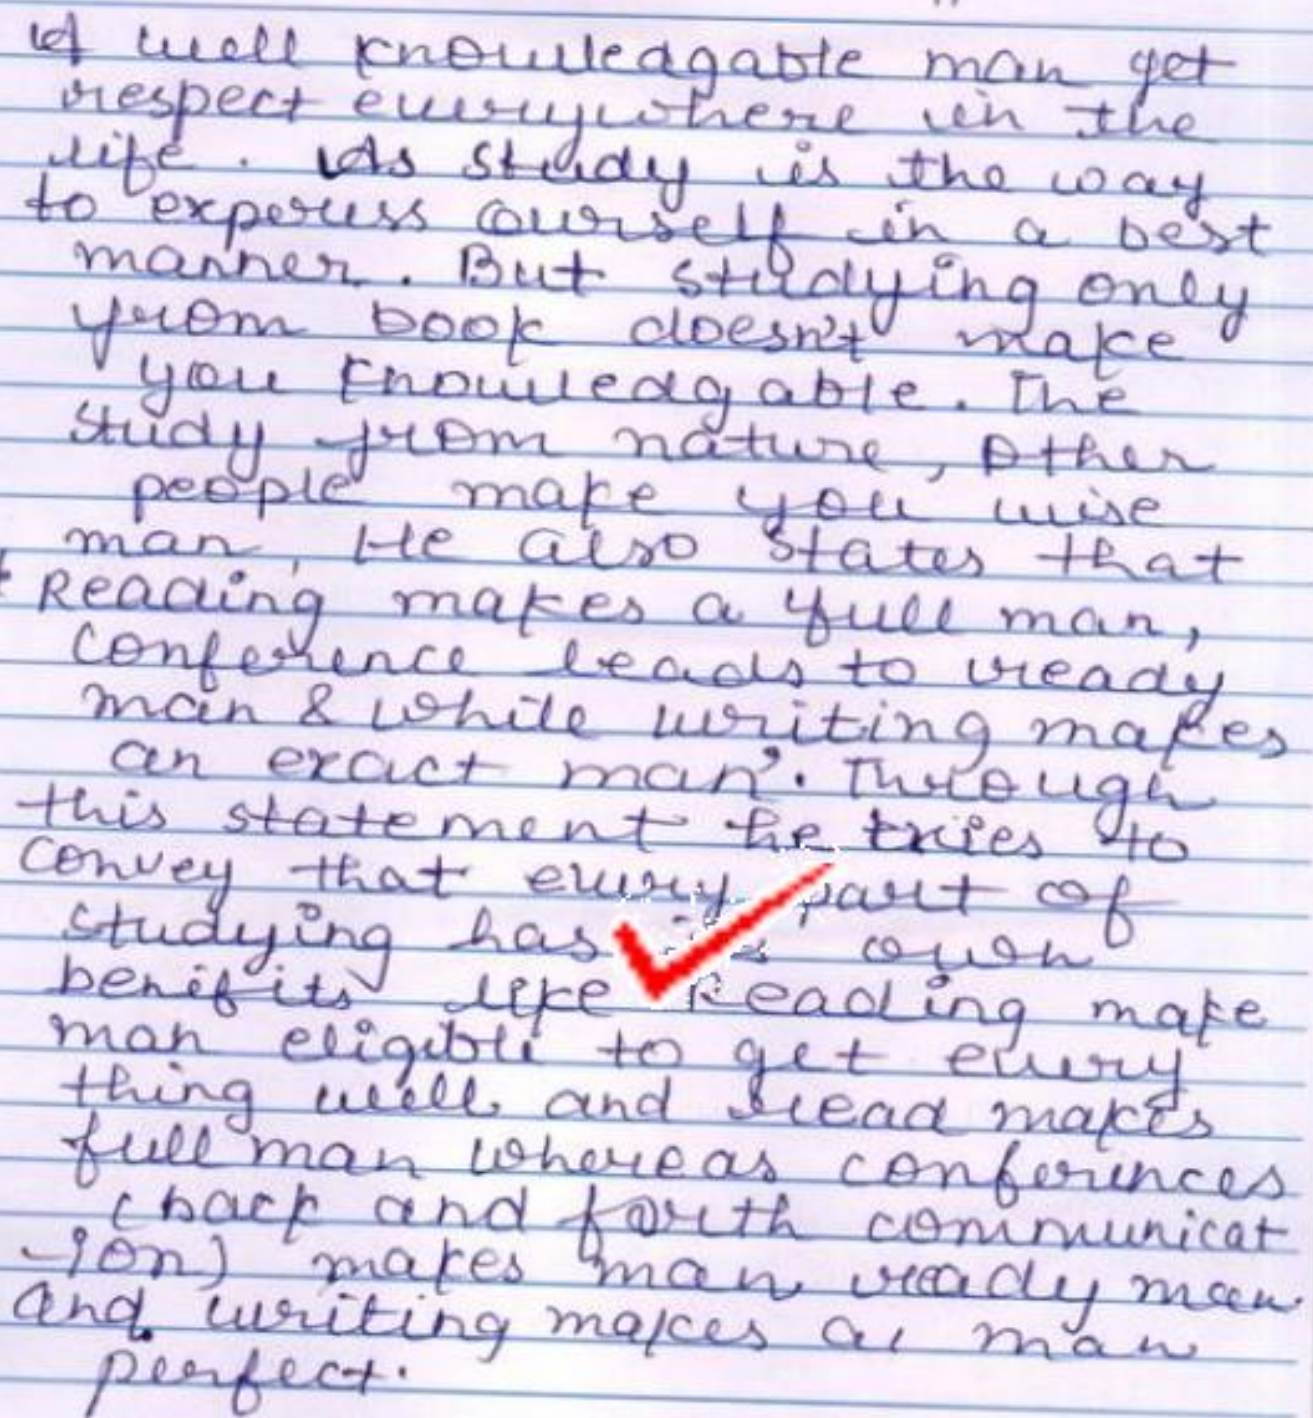 A well knowledgable man get
respect everywhere in the
life. As study is the way
to experess ourself in a best
manner. But studying only
from book doesn't make
you knowledgable. The
study from nature, other
people make you wise
man, He also states that
Reading makes a full man,
conference leads to ready
man & while writing makes
an exact man'. Through
this statement he tries to
convey that every part of
studying has its own
benifits like Reading make
man eligible to get every
thing well and read makes
full man whereas conferences
(back and forth communicat
-ion) makes man ready man.
And writing makes a man
perfect.